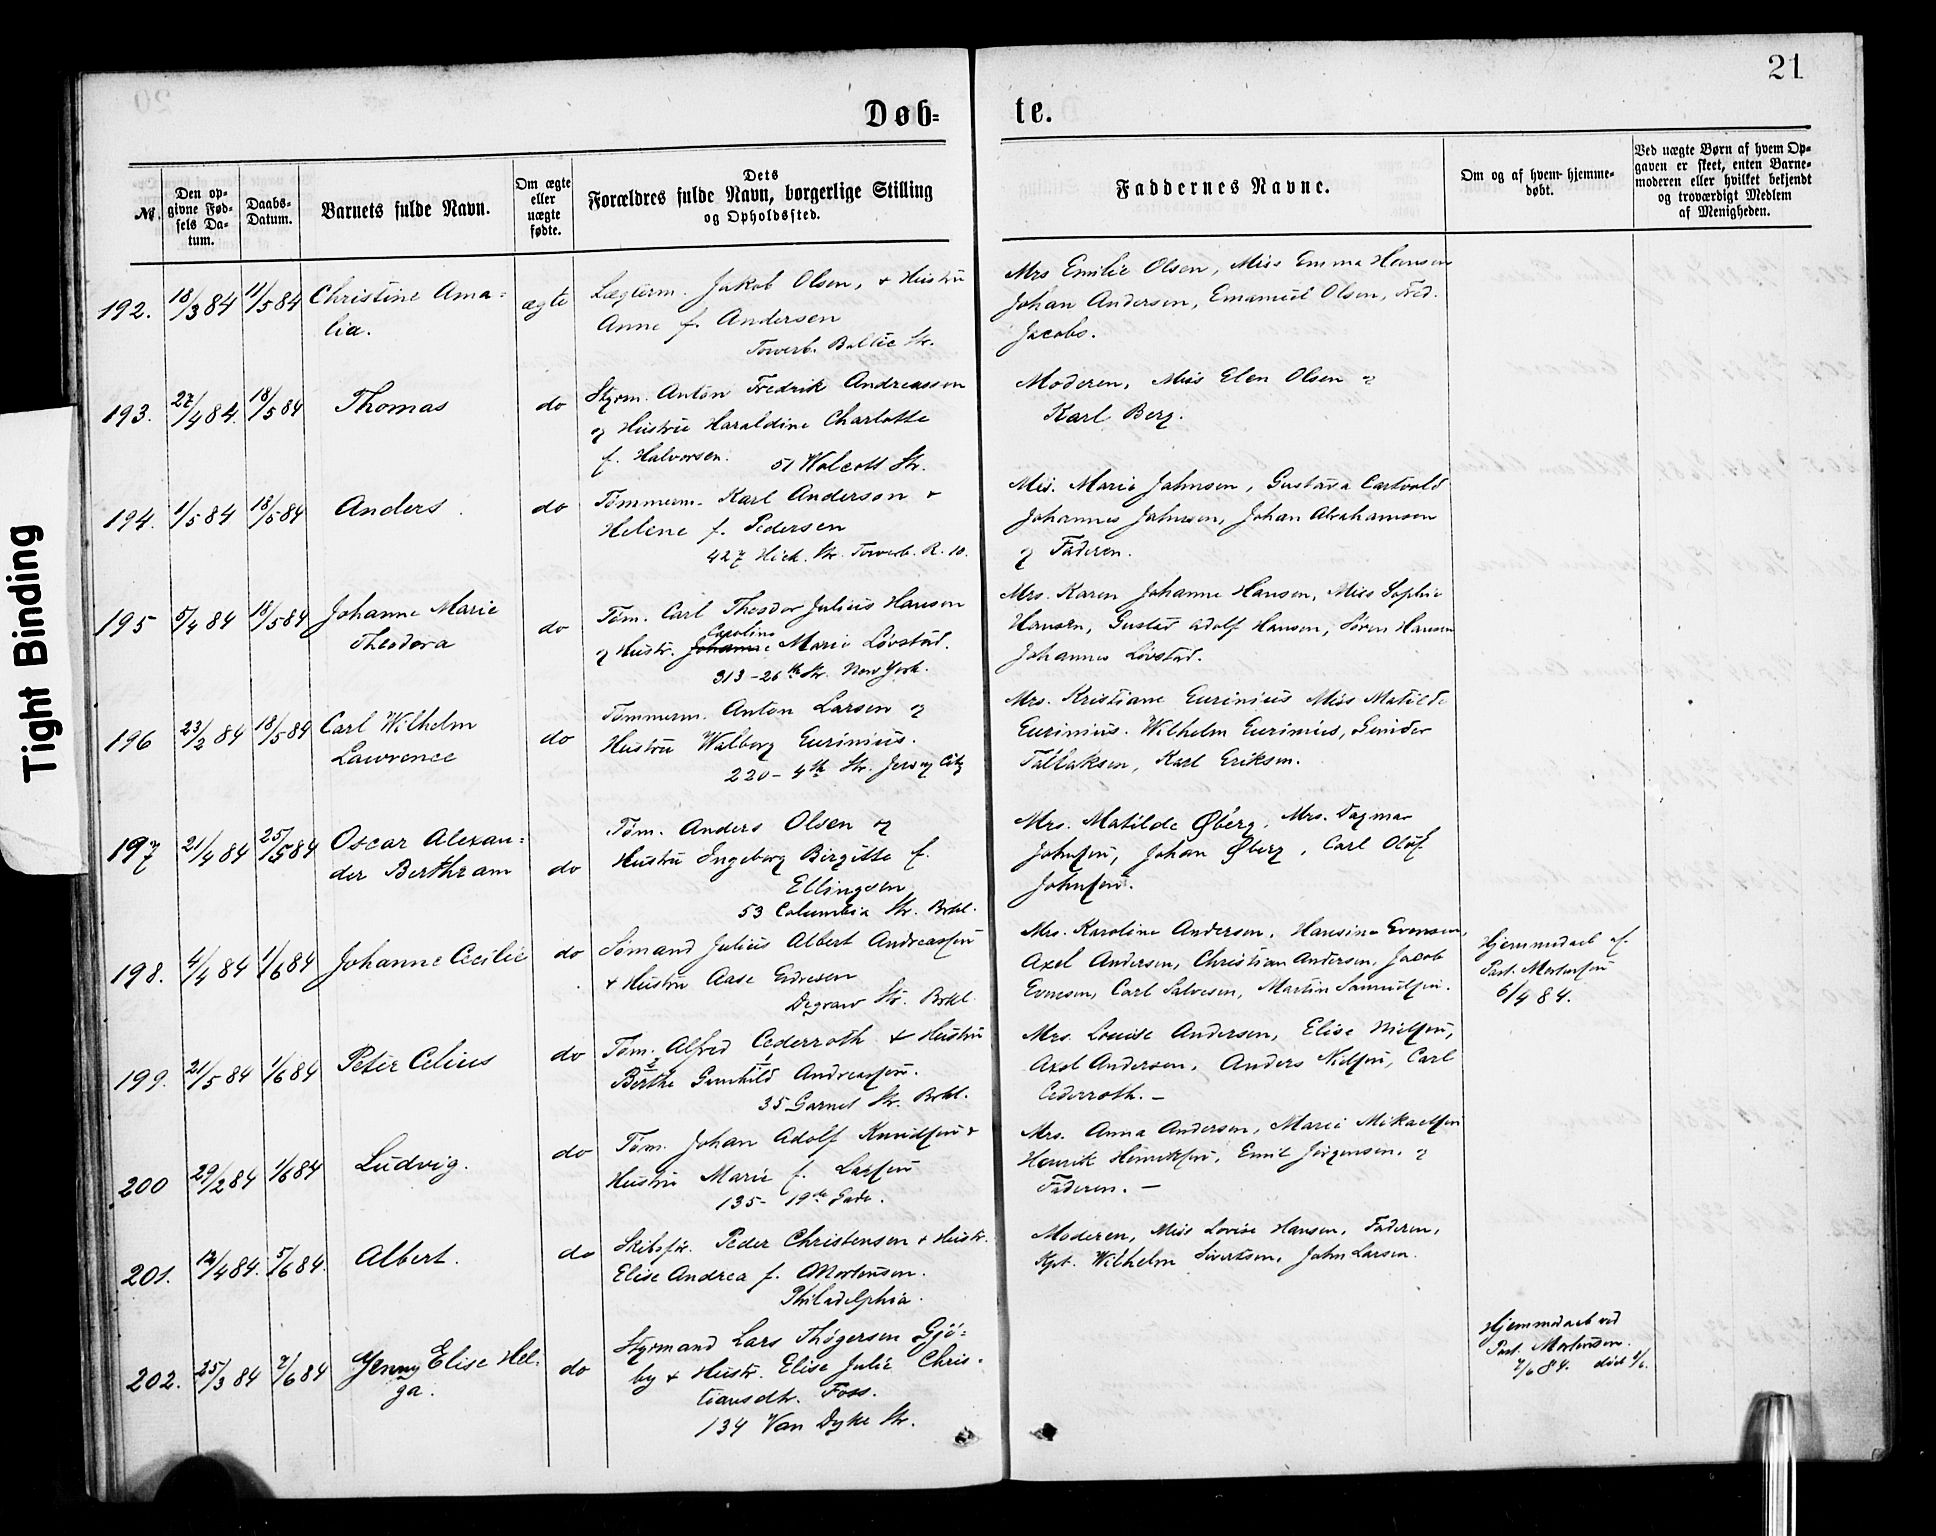 21
Døb-
te.
№.
Den op-
givne Fød-
sels Da-
tum.
Daabs-
Datum.
Barnets fulde Navn.
Om ægte
eller
uægte
fødte.
Dets
Forældres fulde Navn, borgerlige Stilling
og Opholdssted.
Faddernes Navne.
Om og af hvem hjemme-
døbt.
Ved uægte Børn af hvem Op-
gaven er skeet, enten Barne-
moderen eller hvilket bekjendt
og troværdigt Medlem
af Menigheden.
192.
18/3 84
11/5 84
Christine Ama-
lia.
ægte
Lægterm. Jakob Olsen, + Hustru
Anne f. Andersen
Towerb. Baltic Str.
Mrs Emilie Olsen, Miss Emma Hansen
Johan Andersen, Emanuel Olsen, Fred.
Jacobs.
193.
27/4 84.
18/5 84
Thomas
do
Styrm. Anton Fredrik Andreassen
og Hustru Haraldine Charlotte
f. Halvorsen.
51 Wolcott Str.
Moderen, Miss Elen Olsen og
Karl Berg.
194.
1/5 84
18/5 84
Anders.
do
Tømmerm. Karl Anderson +
Helene f. Pedersen
427 Hick. Str. Towerb. R. 10.
Mis. Marie Johnsen, Gustava
Johannes Johnsen, Johan Abrahamson
og Faderen.
195
5/4 84
18/5 84
Johanne Marie
Theodora
do
Tøm. Carl Theodor Julius Hansen
Caroline
og Hustr. Johanne Marie Løvstad.
313-26th Str. New York.
Mrs. Karen Johanne Hansen, Miss Sophie
Hansen, Gustav Adolf Hansen, Søren Hansen
Johannes Løvstad.
196
23/2 84
18/5 84
Carl Wilhelm
Lawrence
do
Tømmerm. Anton Larsen og
Hustru Walborg Eurinius.
220-4th Str. Jersey City
Mrs. Kristiane Eurinius Miss Matilde
Eurinius. Wilhelm Eurinius, Gunder
Tallaksen, Karl Eriksen.
197
21/4 84
25/5 84
Oscar Alexan-
der Berthram
do
Tøm. Anders Olsen og
Hustru Ingeborg Birgitte f.
Ellingsen
53 Columbia Str. Brkl.
Mrs. Matilde Øberg, Mrs. Dagmar
Johnsen, Johan Øberg, Carl Oluf
Johnsen.
198.
4/4 84
1/6 84
Johanne Cecilie
do
Sømand Julius Albert Andreassen
+ Hustru Aase Endresen
Degraw Str. Brkl.
Mrs. Karoline Andersen, Hansine Evensen,
Axel Andersen, Christian Andersen, Jacob
Evensen, Carl Salvesen, Martin Samuelsen.
Hjemmedøbt af
Past. Mortensen
6/4 84.
199.
21/5 84
1/6 84
Peter Celius
do
Tøm. Alfred Cederroth + Hustru
2 1
Berthe Gunhild Andreassen.
35 Garnet Str. Brkl.
Mrs. Louise Andersen, Elise Nielsen,
Axel Andersen, Anders Nielsen, Carl
Cederroth. —
200
29/2 84
1/6 84
Ludvig.
do
Tøm. Johan Adolf Knudsen +
Hustru Marie f. Larsen
135-19de Gade.
Mrs. Anna Andersen, Marie Mikaelsen
Henrik Henriksen, Emil Jørgensen, og
Faderen. —
201.
12/4 84.
5/6 84.
Albert.
do
Skibsfør. Peder Christensen + Hustr.
Elise Andrea f. Mortensen.
Philadelphia.
Moderen, Miss Lovise Hansen, Faderen,
Kpt. Wilhelm Sivertsen, John Larsen.
202.
25/3 84
7/6 84
Jenny Elise Hel-
ga.
do
Styrmand Lars Thøgersen Gjö-
by + Hustr. Elise Julie Chris-
tiansdtr. Foss.
134 Van Dyke Str.
Hjemmedøbt ved
Past. Mortensen.
7/6 84. død
Tight Binding